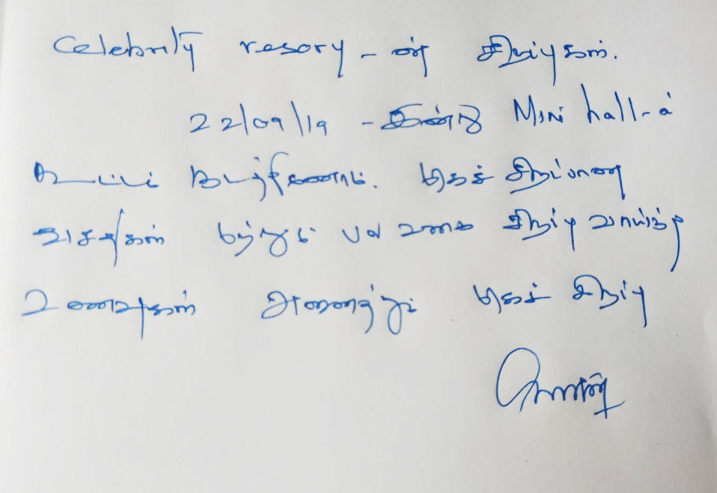 Celebrity resory - ன் சிறப்புகள்.
22/09/19 - இன்று Mini hall-ல்
கூட்டம் நடத்தினோம். மிகச் சிறப்பான
வசதிகள் மற்றும் பல வகை சிறப்பு வாய்ந்த
உணவுகள் அனைத்தும் மிகச் சிறப்பு